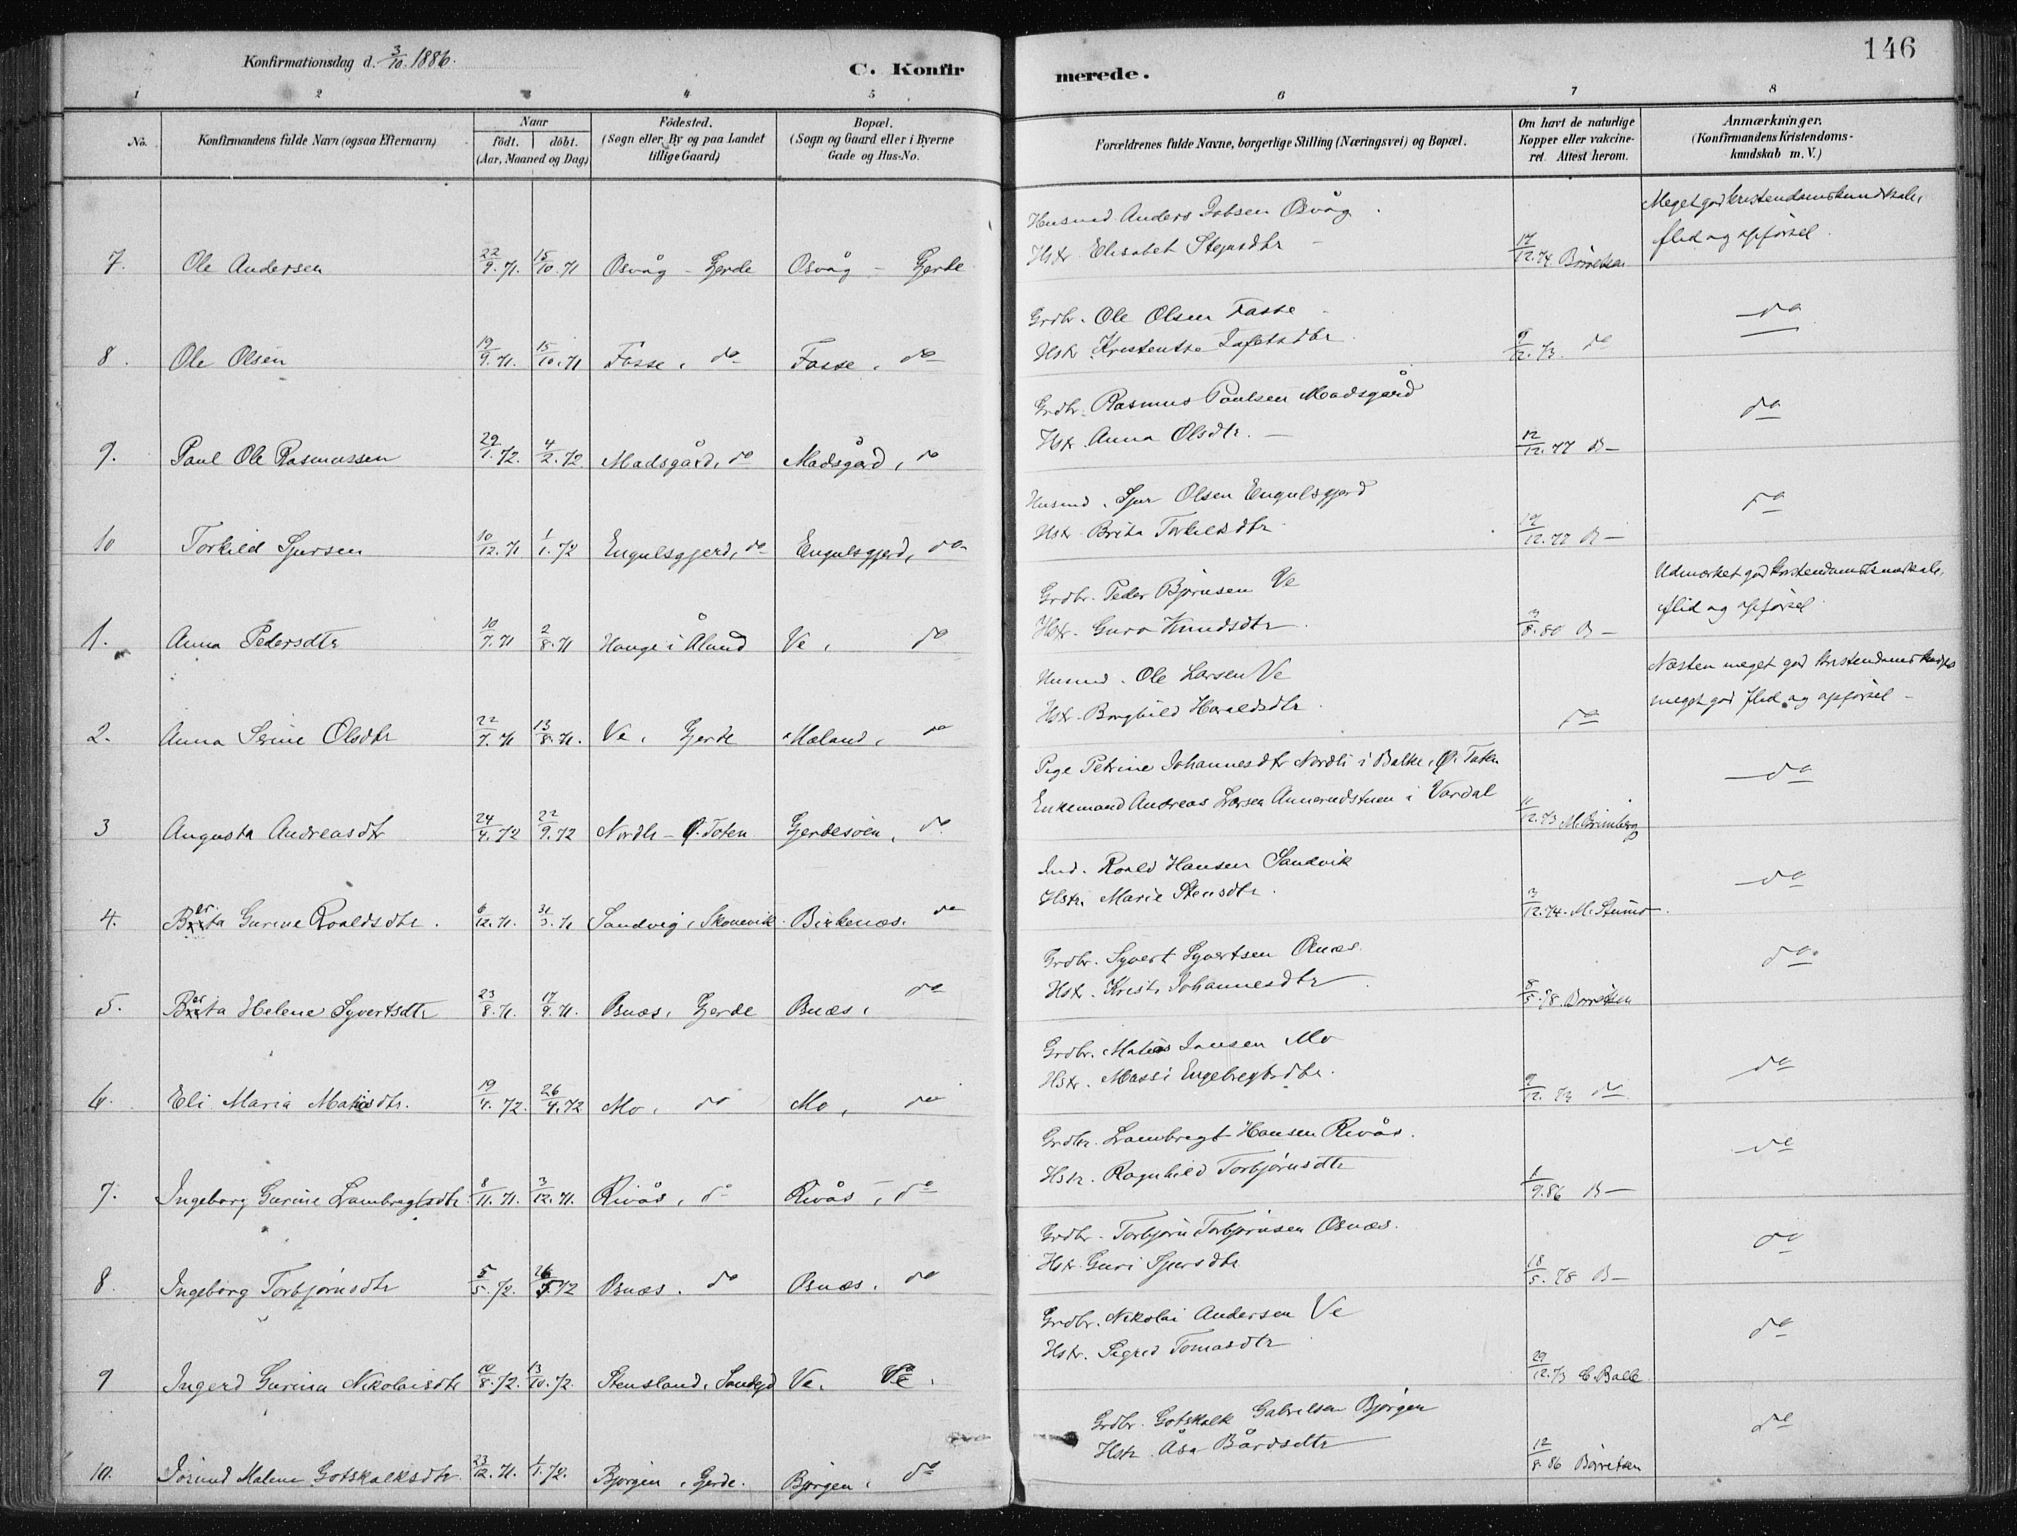 Konfirmationsdag d. 3/10. 1886.
C. Konfirmerede.
146
1 2 3 4 5 6 7 8
No.
Konfirmandens fulde Navn (ogsaa Efternavn)
Naar
födt. döbt.
(Aar, Maaned og Dag)
Födested.
(Sogn eller By og paa Landet
tillige Gaard)
Bopæl.
(Sogn og Gaard eller i Byerne
Gade og Hus-No.
Forældrenes fulde Navne, borgerlige Stilling (Næringsvei) og Bopæl.
Om havt de naturlige
Kopper eller vakcine-
ret. Attest herom.
Anmærkninger.
(Konfirmandens Kristendoms-
kundskab m. V.)
Husmd Anders Jobsen Osvåg
Hstr. Elisabet Stensdtr
Meget god kristendomskundskab,
flid og opførsel.
7. Ole Andersen 22/9. 71 15/10. 71 Osvåg - Gjerde Osvåg - Gjerde 17/12. 74 Børretsen
Grdbr. Ole Olsen Fosse
Hstr. Kristentse Jafetsdtr. do
8. Ole Olsen 19/9. 71. 15/10. 71 Fosse, do Fosse, do 9/12. 73. do
Grdbr. Rasmus Paulsen Madsgård
Hstr. Anna Olsdtr. do
9. Paul Ole Rasmussen 29/1. 72. 4/2. 72 Madsgård, do Madsgård, do 12/12. 77 B-
Husmd. Sjur Olsen Engelsgjerd
Hstr. Brita Torkildsdtr. do
10 Torkild Sjursen 10/12. 71 1/1. 72 Engelsgjerd, do Engelsgjerd, do 12/12. 77 B-
Grdbr. Peder Bjørnsen Ve
Hstr. Guro Knudsdtr.
Udmærket god kristendomskundskab,
flid og opførsel.
1. Anna Pedersdtr 10/7. 71 2/8. 71 Hauge i Åland Ve, do 3/8. 80 B-
Husmd. Ole Larsen Ve
Hstr. Borghild Haraldsdtr.
Næsten meget god kristendomskundskab
meget god flid og opførsel -
2. Anna Serine Olsdtr 22/7. 71 13/8. 71. Ve, Gjerde Mæland, do do
Pige Petrine Johannesdtr Nordli i Balke, Ø. Toten
Enkemand Andreas Larsen Annerudstuen i Vardal do
3 Augusta Andreasdtr 24/4. 72 22/9. 72 Nordli - Ø. Toten Gjerdesøen, do 11/12. 73
Ind. Roald Hansen Sandvik
Hstr. Marie Stensdtr. do
4. Berta Gurine Roaldsdtr. 6/12. 71. 31/3. 71 Sandvig, Skonevik Birkenæs. do 3/12. 74.
Grdbr. Syvert Syvertsen Osnæs
Hstr. Kristi Johannesdtr do
5. Berta Helene Syvertsdtr 23/8. 71. 17/9. 71. Osnæs, Gjerde Osnæs, do 8/5. 78. Børretsen
Grdbr. Matias Jansen Mo
Hstr. Massi Engebregtsdtr. do
6. Eli Maria Matisdtr. 19/4. 72. 26/4. 72 Mo, do Mo, do 9/12. 73 do
Grdbr. Lambregt Hansen Rivås.
Hstr. Ragnhild Torbjørnsdtr do
7. Ingeborg Gurine Lambregtsdtr. 8/11. 71. 3/12. 71. Rivås, do Rivås, do 1/9. 86 B-
Grdbr. Torbjørn Torbjørnsen Osnæs.
Hstr. Guri Sjursdtr do
8. Ingeborg Torbjørnsdtr 5/5. 72. 26/5 72 Osnæs. do Osnæs. do 18/5. 78 B-
Grdbr. Nikolai Andersen Ve
Hstr. Sigrid Tomasdtr do
9 Ingerd Gurina Nikolaisdtr 14/8. 72. 13/10. 72. Stensland, Ve. do. 29/12. 73
Grdbr. Gotskalk Gabrielsen Bjørgen
Hstr. Åsa Bårdsdtr do
10. Jorund Malene Gotskalksdtr. 23/12. 71. 1/1. 72. Bjørgen, Gjerde. Bjørgen, do 12/8. 86 Børretsen